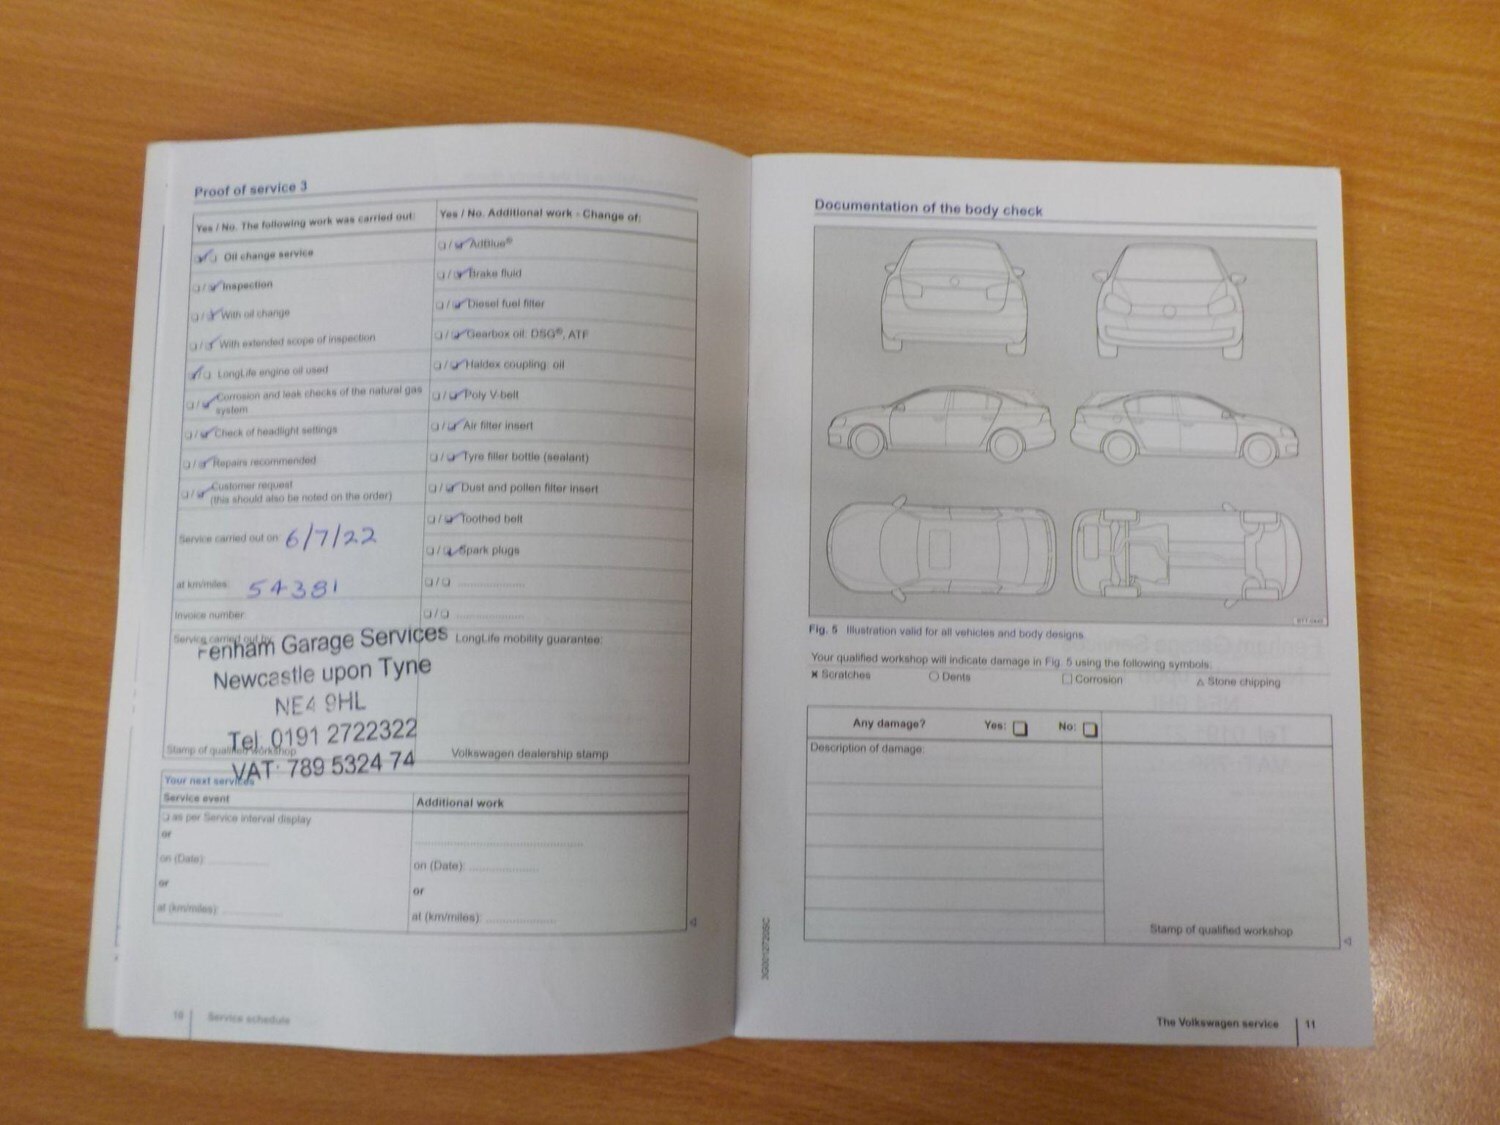 Proof of service 3
Yes / No. The following work was carried out:
Oil change service
Inspection
With oil change
With extended scope of inspection
LongLife engine oil used
Corrosion and leak checks of the natural gas
system
Check of headlight settings
Repairs recommended
Customer request
(this should also be noted on the order)
Service carried out on: 6/7/22
at km/miles: 54381
Invoice number:
Service carried out by:
Fenham Garage Services
Newcastle upon Tyne
NE4 9HL
Tel. 0191 2722322
Stamp of qualified workshop
VAT: 789 5324 74
Yes / No. Additional work - Change of:
AdBlue®
Brake fluid
Diesel fuel filter
Gearbox oil: DSG®, ATF
Haldex coupling: oil
Poly V-belt
Air filter insert
Tyre filler bottle (sealant)
Dust and pollen filter insert
Toothed belt
Spark plugs
LongLife mobility guarantee:
Volkswagen dealership stamp
Your next services
Service event
as per Service interval display
or
on (Date):
or
at (km/miles):
Additional work
on (Date):
or
at (km/miles):
10 Service schedule
Documentation of the body check
Fig. 5 Illustration valid for all vehicles and body designs
Your qualified workshop will indicate damage in Fig. 5 using the following symbols:
Scratches Dents Corrosion Stone chipping
Any damage? Yes: No:
Description of damage:
Stamp of qualified workshop
The Volkswagen service 11